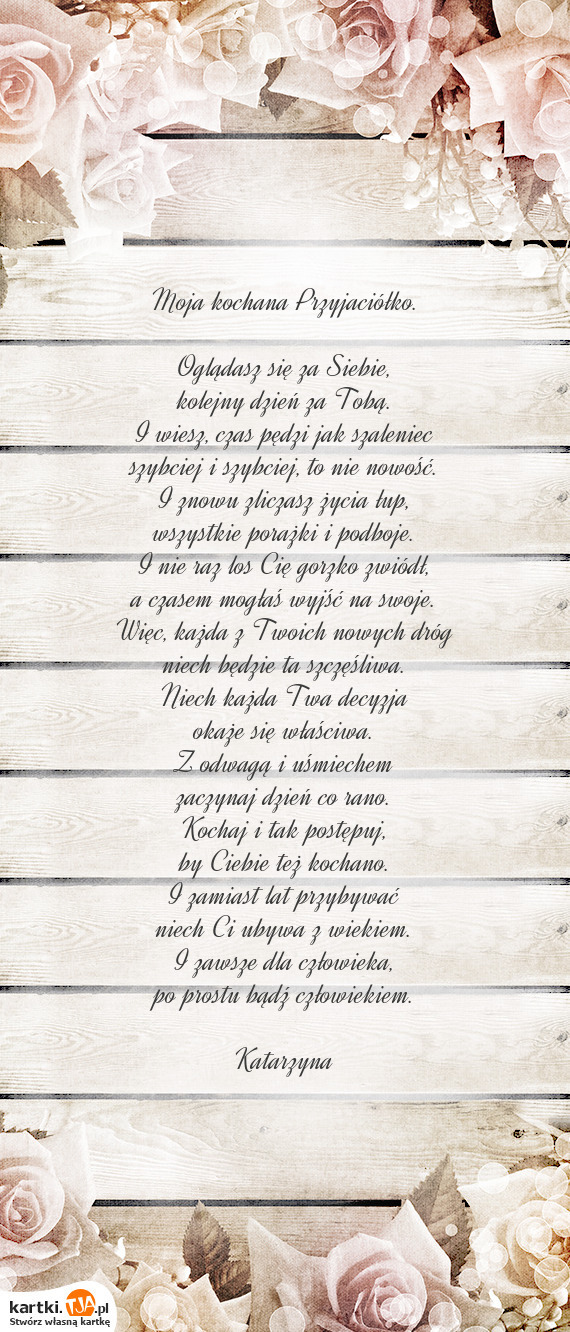 Moja kochana Przyjaciółko.
Oglądasz się za Siebie,
kolejny dzień za Tobą.
I wiesz, czas pędzi jak szaleniec
szybciej i szybciej, to nie nowość.
I znowu zliczasz życia łup,
wszystkie porażki i podboje.
I nie raz los Cię gorzko zwiódł,
a czasem mogłaś wyjść na swoje.
Więc, każda z Twoich nowych dróg
niech będzie ta szczęśliwa.
Niech każda Twa decyzja
okaże się właściwa.
Z odwagą i uśmiechem
zaczynaj dzień co rano.
Kochaj i tak postępuj,
by Ciebie też kochano.
I zamiast lat przybywać
niech Ci ubywa z wiekiem.
I zawsze dla człowieka,
po prostu bądź człowiekiem.
Katarzyna
kartki.TJA.pl
Stwórz własną kartkę